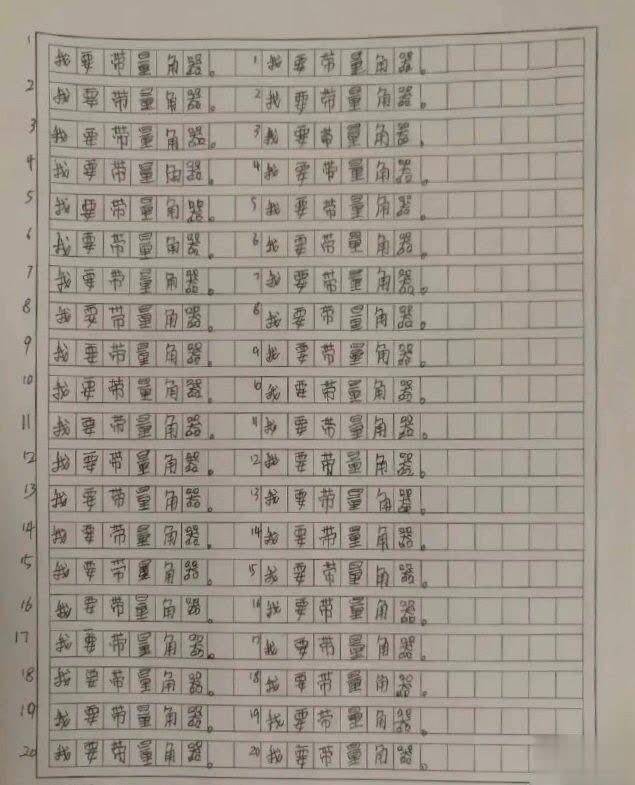 1 我要带量角器。 1 我要带量角器。
2 我要带量角器。 2 我要带量角器。
3 我要带量角器。 3 我要带量角器.
4 我要带量角器。 4 我要带量角器。
5 我要带量角器。 5 我要带量角器。
6 我要带量角器。 6 我要带量角器。
7 我要带量角器。 7 我要带量角器。
8 我要带量角器。 8 我要带量角器。
9 我要带量角器。 9 我要带量角器。
10 我要带量角器。 10 我要带量角器。
11 我要带量角器。 11 我要带量角器。
12 我要带量角器。 12 我要带量角器。
13 我要带量角器。 13 我要带量角器。
14 我要带量角器。 14 我要带量角器。
15 我要带量角器。 15 我要带量角器。
16 我要带量角器。 16 我要带量角器。
17 我要带量角器。 17 我要带量角器。
18 我要带量角器。 18 我要带量角器。
19 我要带量角器。 19 我要带量角器。
20 我要带量角器。 20 我要带量角器。